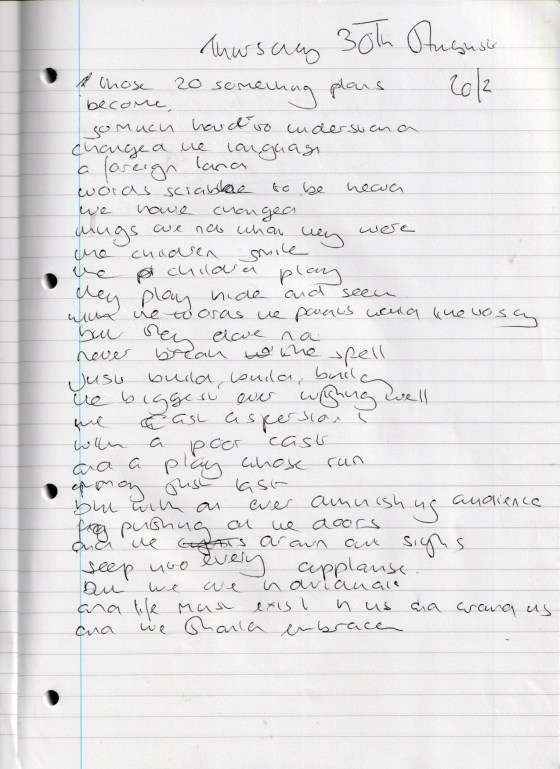 Thursday 30Th August
20/2
those 20 something plans
become,
so much hard to understand
changed the language
a foreign land
words scrabble to be heard
we have changed
things are not what they were
the children smile
the children play
they play hide and seek
with the words the parents would like to say
but they dare not
never break the spell
Just build, build, build
the biggest ever wishing well
we cast aspersions
with a poor cast
and a play whose run
may just last
but with an ever diminishing audience
pushing on the doors
and the drawn out sighs
seep into every applause.
but we are
and life must exist in us and around us
and we should embrace